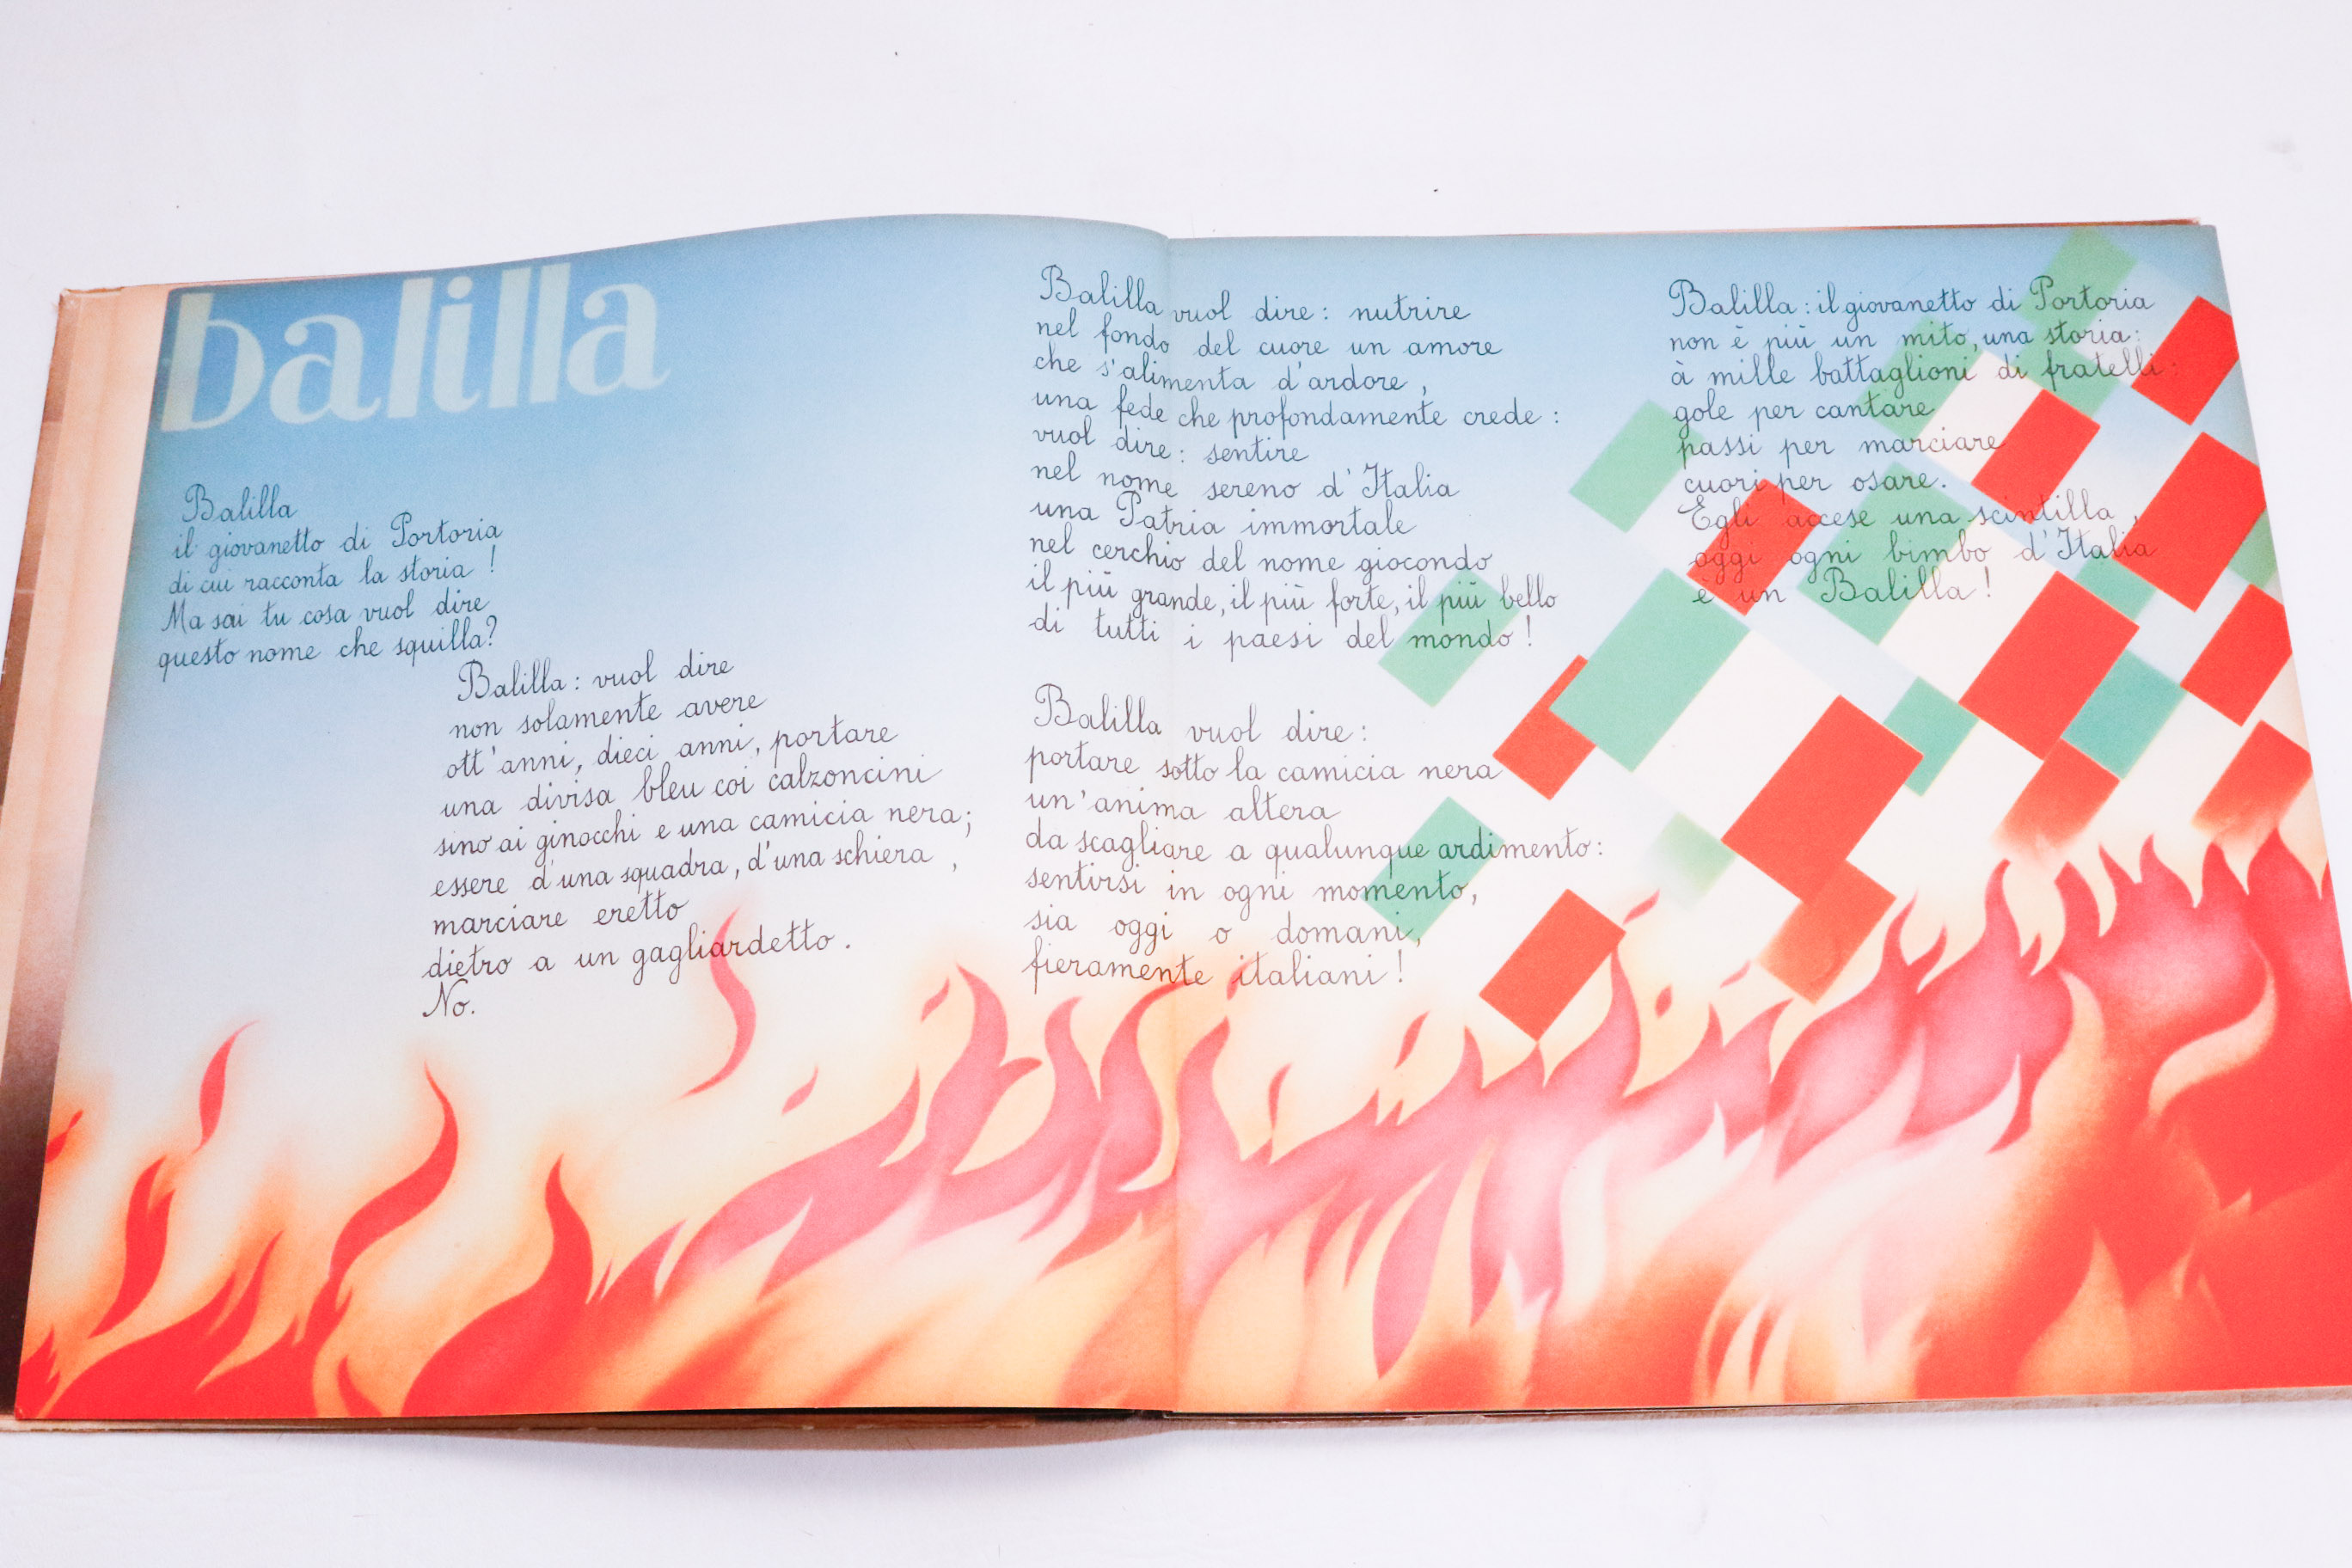 balilla
Balilla
il giovanetto di Portoria
di cui racconta la storia !
Ma sai tu cosa vuol dire
questo nome che squilla?
Balilla : vuol dire
non solamente avere
ott'anni, dieci anni, portare
una divisa bleu coi calzoncini
sino ai ginocchi e una camicia nera;
essere d'una squadra, d'una schiera ,
marciare eretto
dietro a un gagliardetto .
No.
Balilla vuol dire : nutrire
nel fondo del cuore un amore
che s'alimenta d'ardore ,
una fede che profondamente crede :
vuol dire : sentire
nel nome sereno d'Italia
una Patria immortale
nel cerchio del nome giocondo
il più grande, il più forte, il più bello
di tutti i paesi del mondo !
Balilla vuol dire :
portare sotto la camicia nera
un'anima altera
da scagliare a qualunque ardimento :
sentirsi in ogni momento,
sia oggi o domani,
fieramente italiani !
Balilla : il giovanetto di Portoria
non è più un mito, una storia :
à mille battaglioni di fratelli :
gole per cantare
passi per marciare
cuori per osare.
Egli accese una scintilla ,
oggi ogni bimbo d'Italia
è un Balilla !